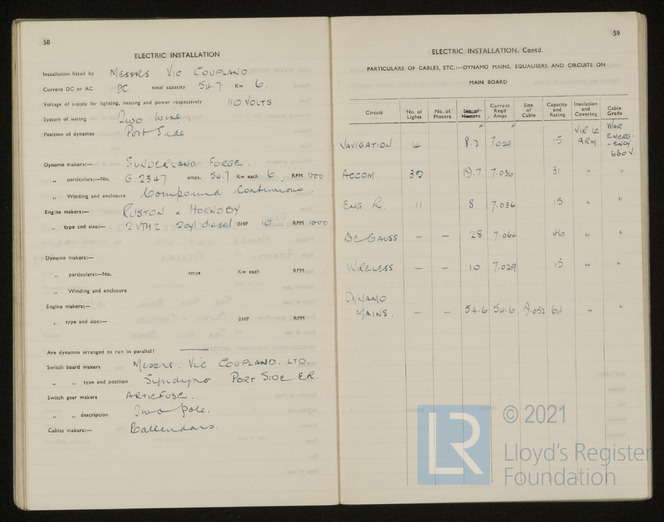 58
ELECTRIC INSTALLATION
Installation fitted by MESSRS VIC COUPLAND.
Current DC or AC DC total capacity 54.7 Kw 6.
Voltage of supply for lighting, heating and power respectively 110 VOLTS
System of wiring Two wire,
Position of dynamos Port Side
Dynamo makers:— SUNDERLAND FORGE.
„ particulars:—No. G.2347 amps. 54.7 Kw each 6. RPM 1000
„ Winding and enclosure Compound Continuous.
Engine makers:— RUSTON & HORNSBY
„ type and size:— 2 VTH2 2cyl diesel BHP 10 RPM 1000
Dynamo makers:—
„ particulars:—No. amps Kw each RPM
„ Winding and enclosure
Engine makers:—
„ type and size:— BHP RPM
Are dynamos arranged to run in parallel?
Switch board makers Messrs. Vic COUPLAND. LTD.
„ „ type and position PORT SIDE E.R.
Switch gear makers ARTICFUSE.
„ „ description Two pole.
Cables makers:— Callendars.
59
ELECTRIC INSTALLATION, Contd.
PARTICULARS OF CABLES, ETC.:—DYNAMO MAINS, EQUALISERS AND CIRCUITS ON
MAIN BOARD
Circuit No. of Lights No. of Motors Current Reqd Amps Size of Cable Capacity and Rating Insulation and Covering Cable Grade
NAVIGATION 14 7.029 15 VIR LC ARM WAR EMERG-ENCY 660 V.
ACCOM 30 19.7 7.036 31 " "
ENG R. 11 8 7.036 15 " "
DEGAUSS – – 28 7.064 46 " "
WIRELESS – – 10 7.029 15 " "
DYNAMO
MAINS. – – 54.6 54.6 64 " "
LR
© 2021
Lloyd's Register
Foundation